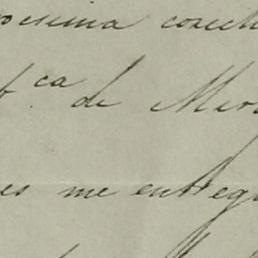 ocsima cosech
f.ca de Mer
es me entregu